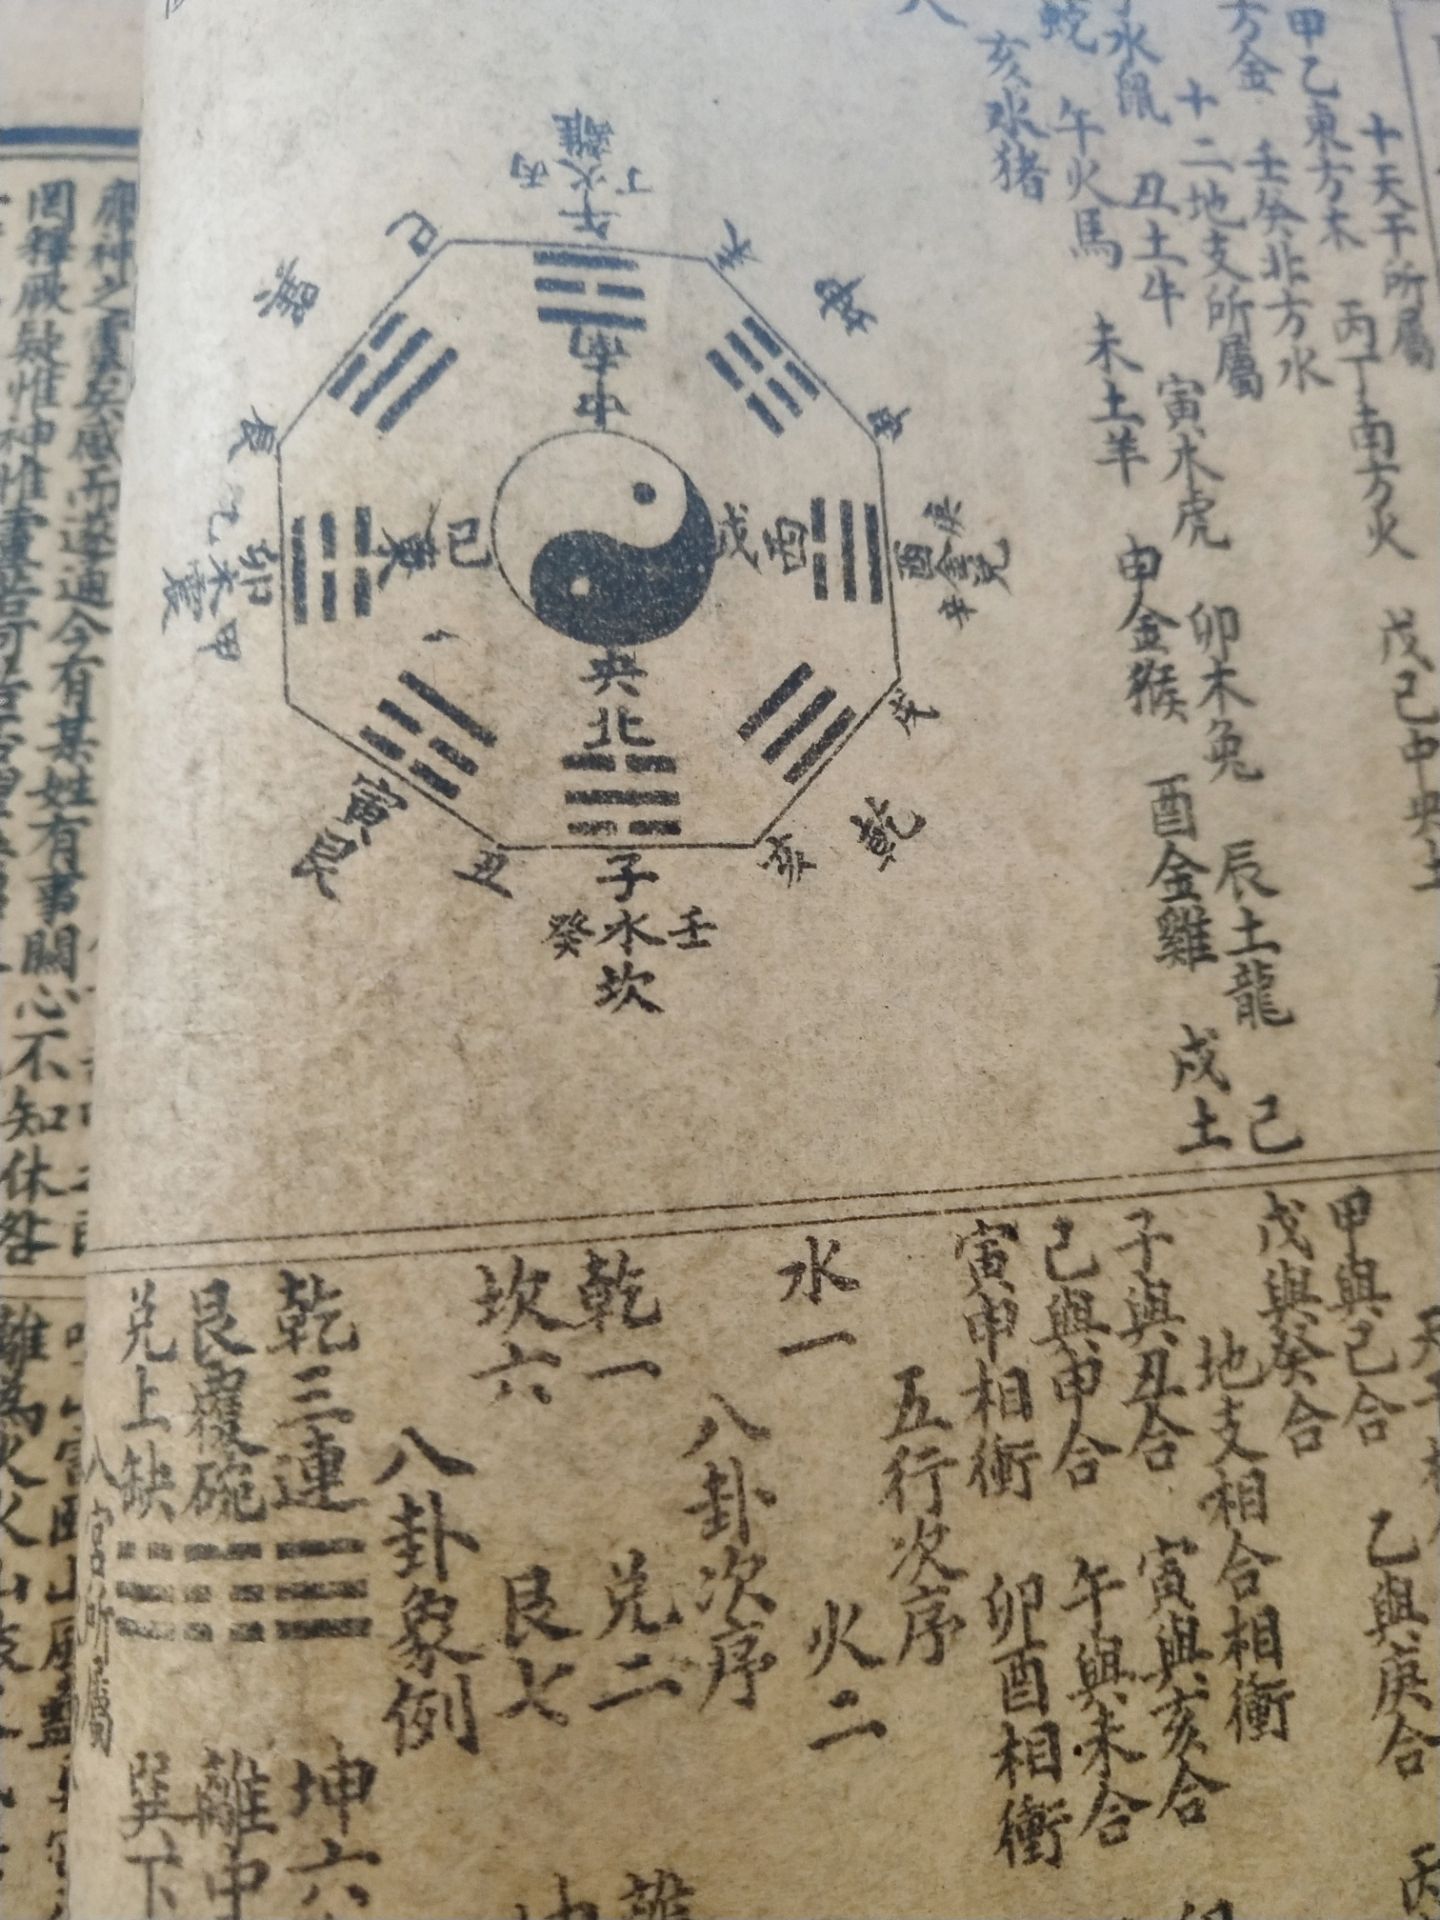 十天干所屬
甲乙東方木 丙丁南方火 戊己中央土
方金 壬癸北方水
十二地支所屬
水鼠 丑土牛 寅木虎 卯木兔 辰土龍 己
蛇 午火馬 未土羊 申金猴 酉金雞 戌土
亥水猪
離
丙火丁
午
南
中
未
坤
申
庚
酉金兌
辛
酉
戊
戌
乾
亥
央
北
子
癸水壬
坎
丑
寅
艮
甲
卯木震
乙
東
己
辰
巽
巳
甲與己合 乙與庚合
戊與癸合
地支相合相衝
子與丑合 寅與亥合
己與申合 午與未合
寅申相衝 卯酉相衝
五行次序
水一 火二
八卦次序
乾一 兌二
坎六 艮七
八卦象例
乾三連 坤六
艮覆碗 離中
兌上缺 巽下
八宮所屬
神之靈矣感而遂通今有某姓有事關心不知休咎
罔釋厥疑惟神惟靈
離為火火山